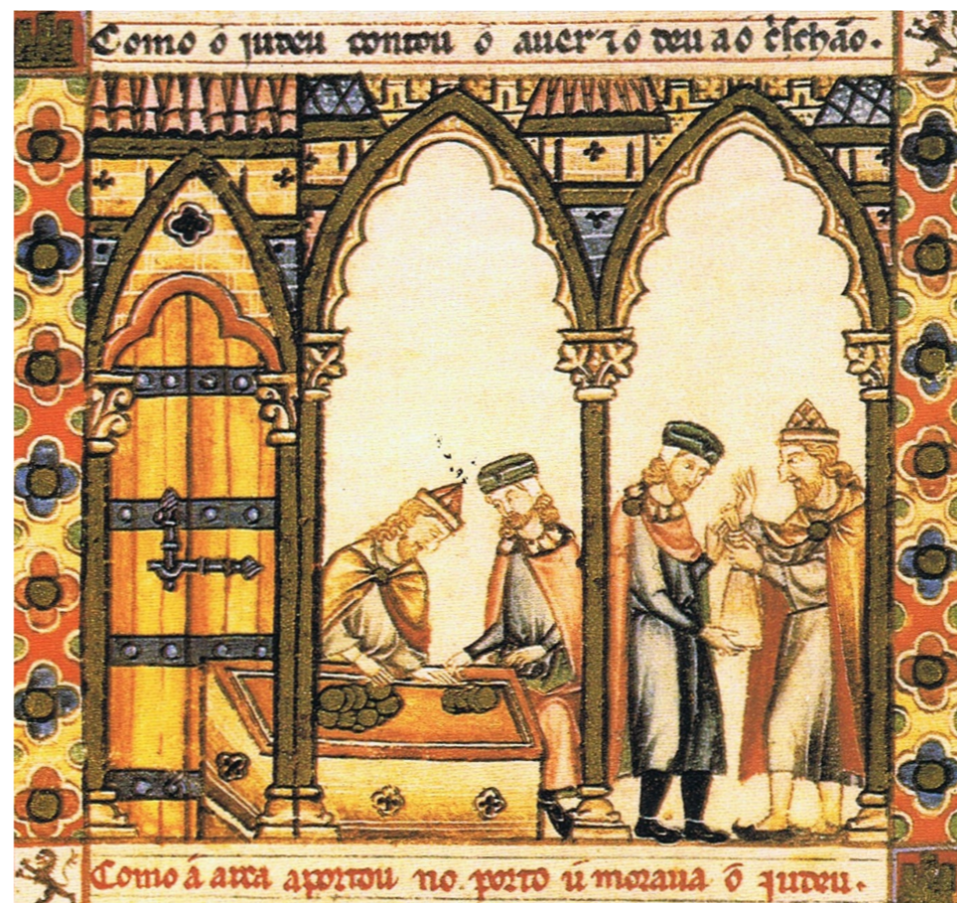 Como o iudeu contou o auer ⁊ o deu ao c̀schão.
Como á arca aportou no porto ú moraua o iudeu.